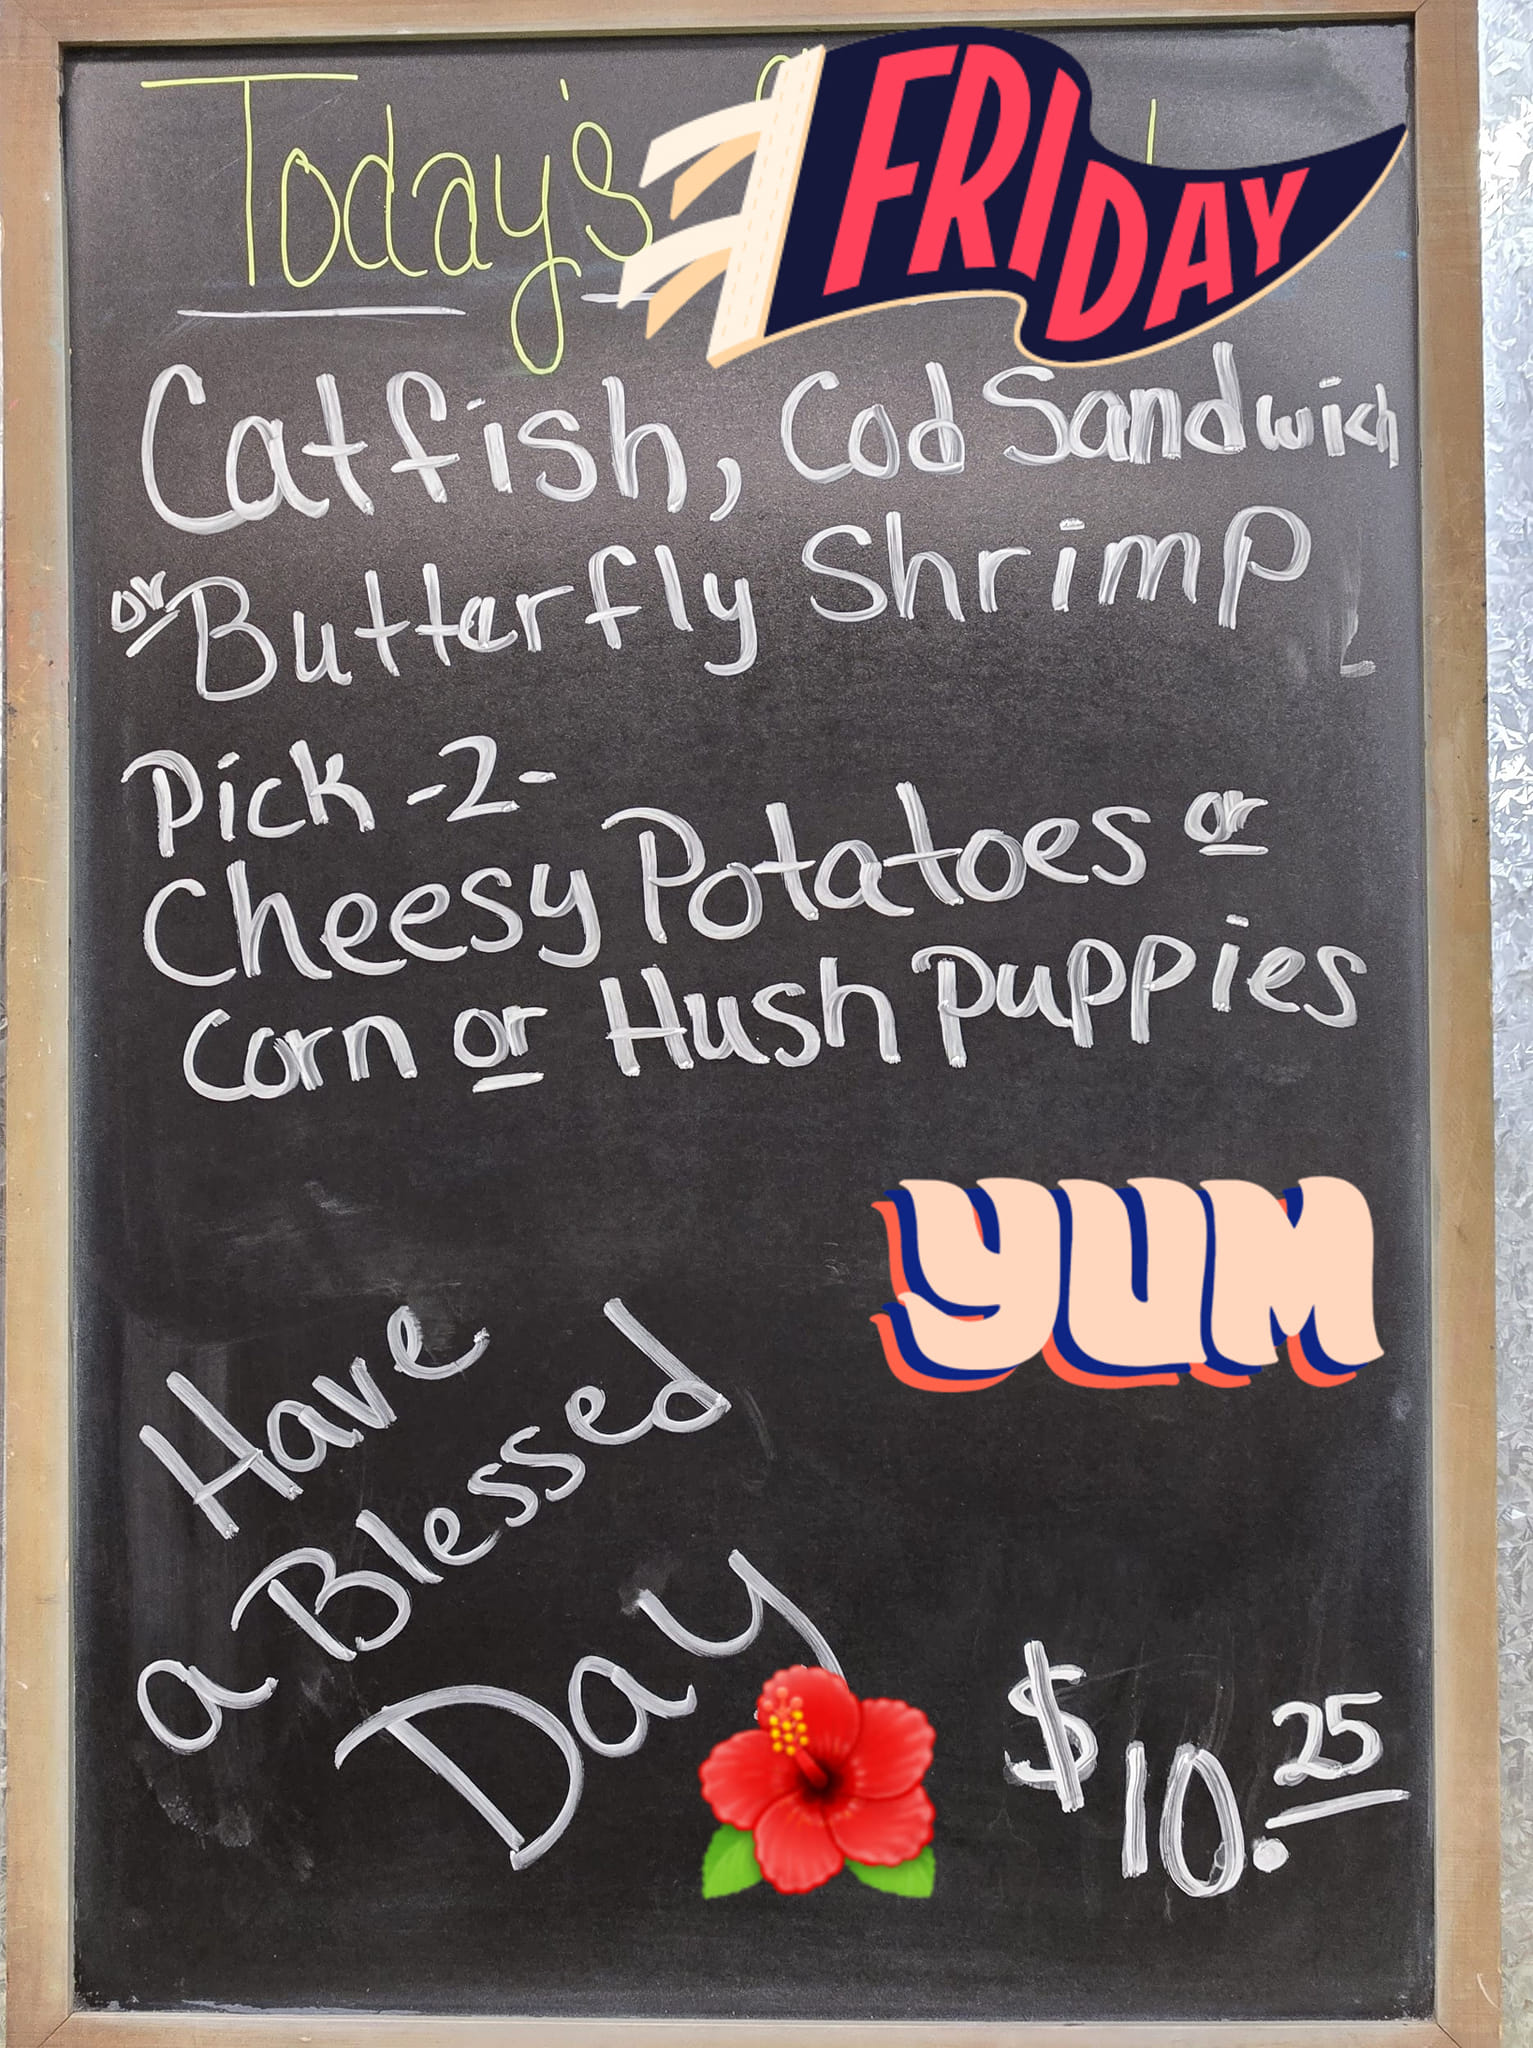 Today's
FRIDAY
Catfish, Cod Sandwich
or Butterfly Shrimp
Pick -2-
Cheesy Potatoes or
Corn or Hush puppies
YUM
Have
a Blessed
Day
$10.25